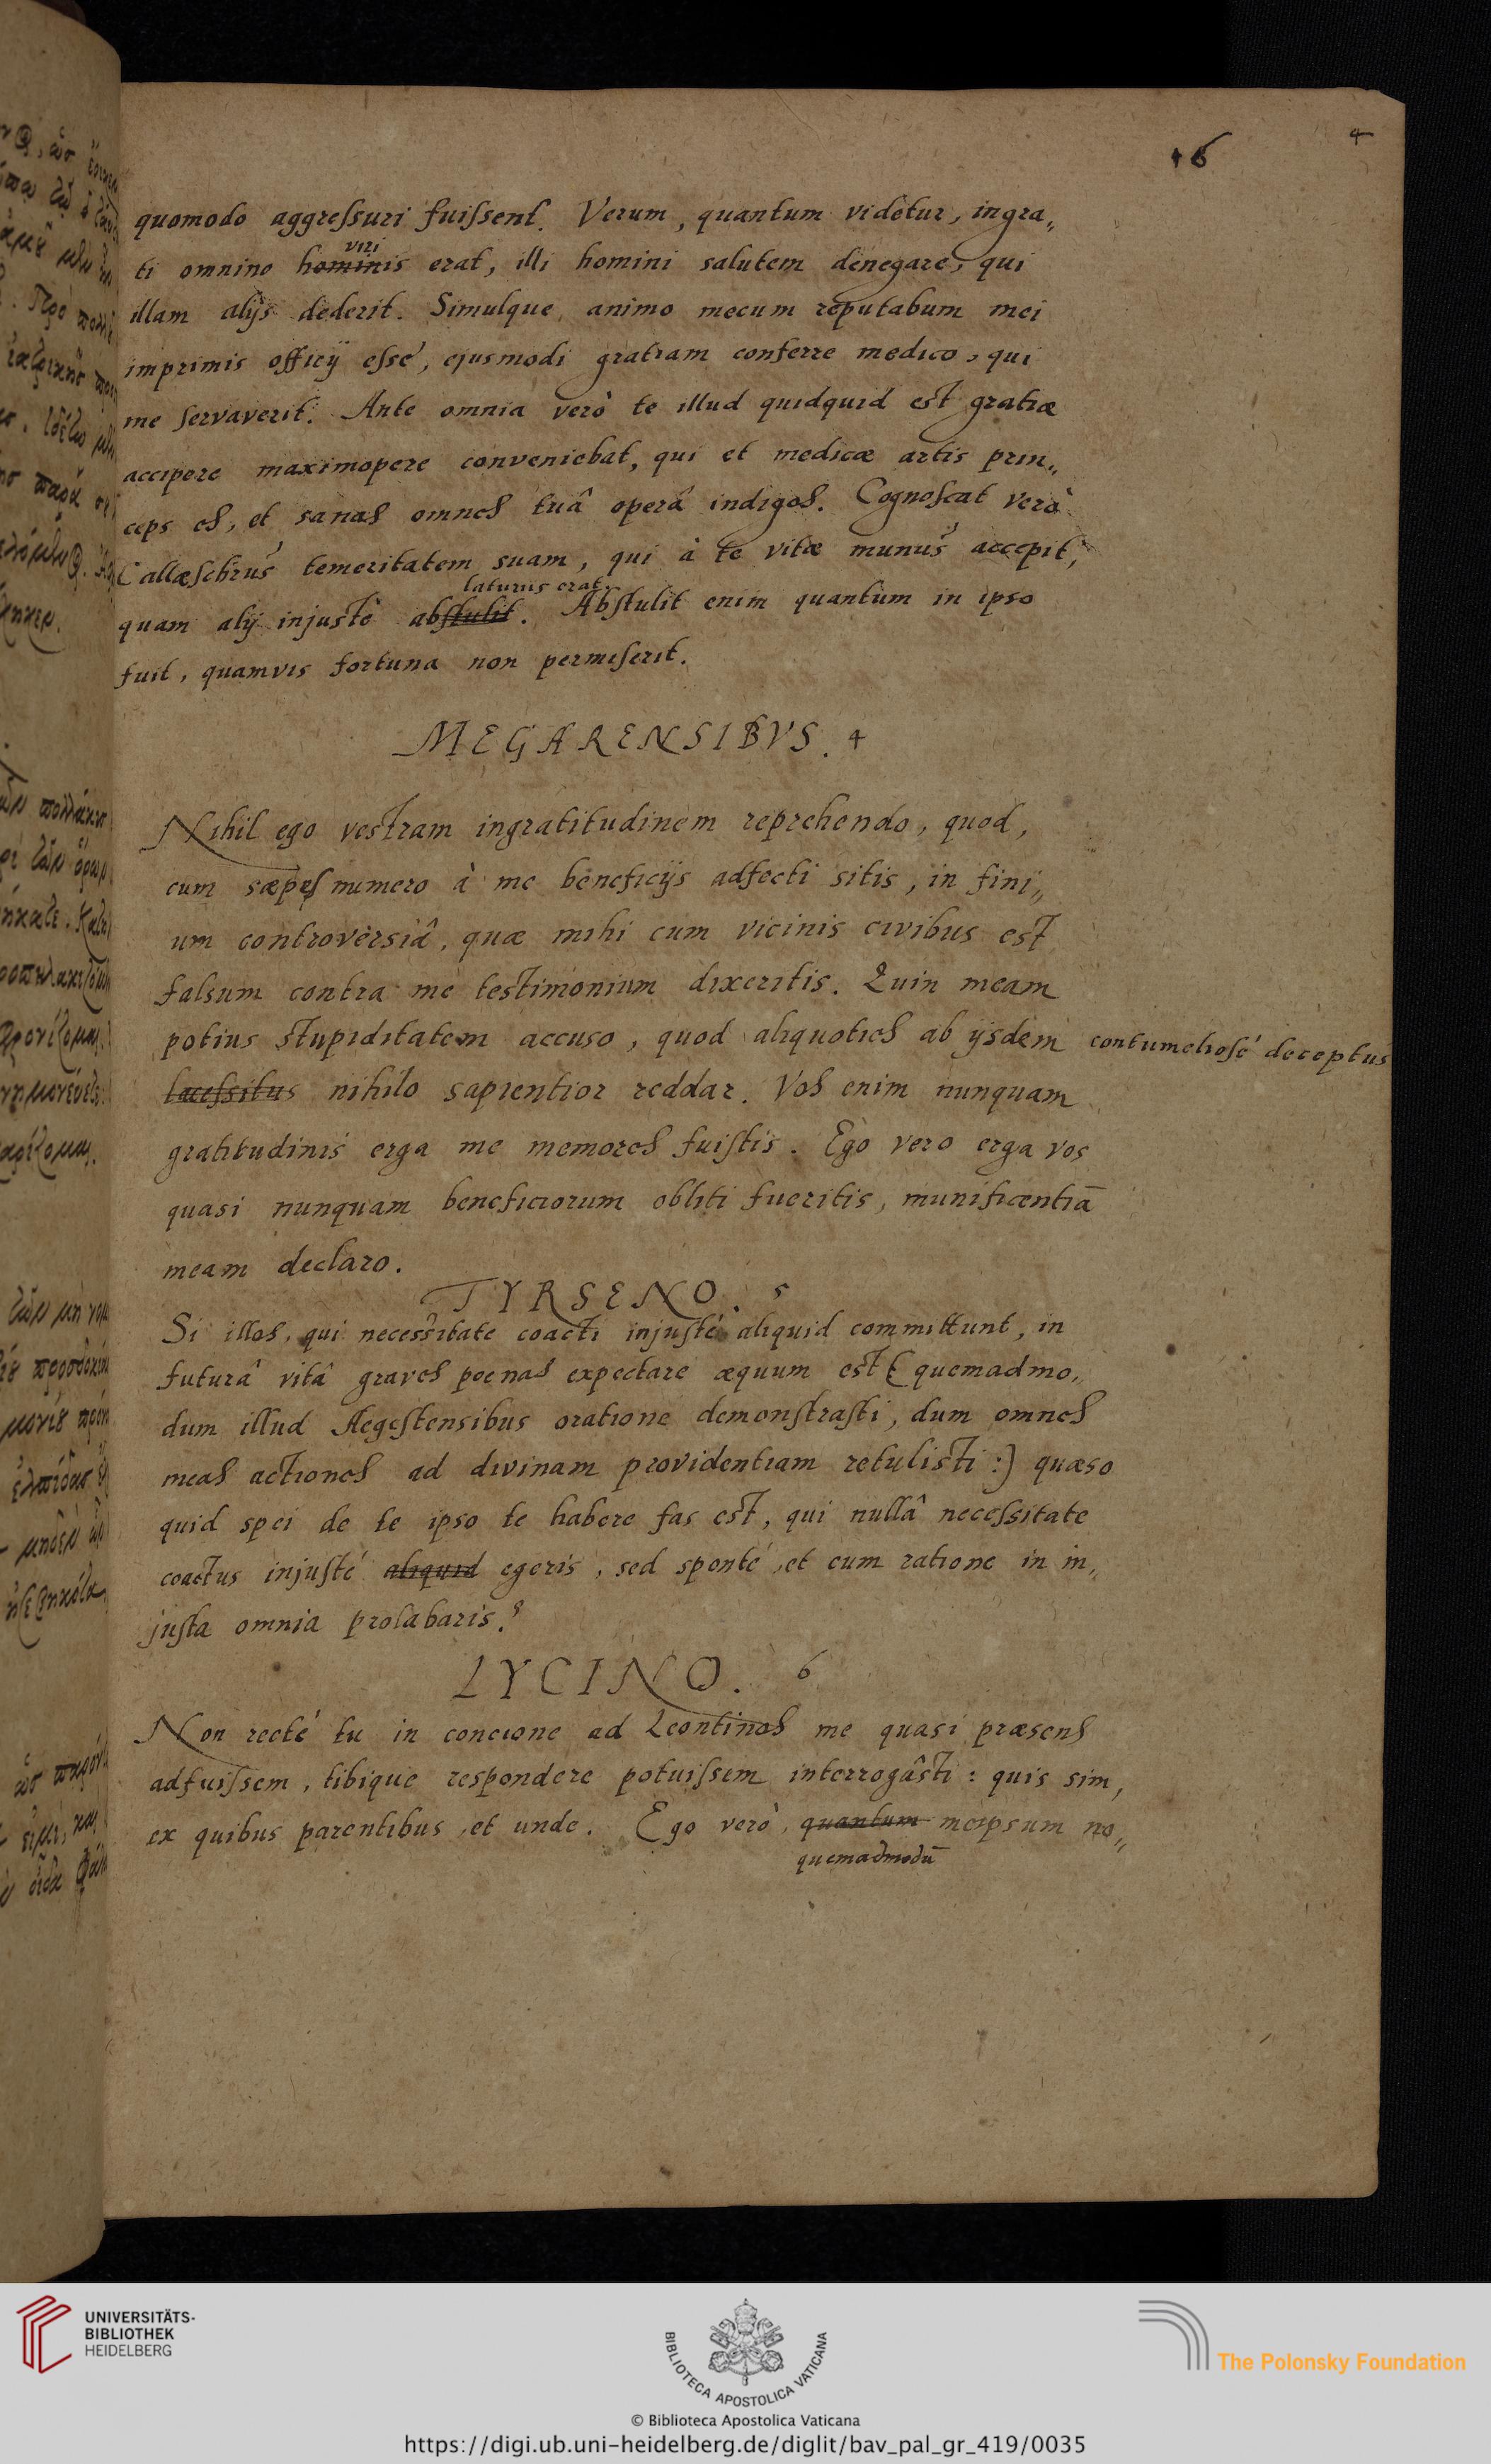 16
4
quomodo aggressuri fuissent. Verum, quantum videtur, ingra„
viri
ti omnino hominis erat, illi homini salutem denegare, qui
illam alijs dederit. Simulque animo mecum reputabum mei
imprimis officij esse, ejusmodi gratiam conferre medico, qui
me servaverit. Ante omnia verò te illud quidquid est gratiæ
accipere maximopere conveniebat, qui et medicæ artis prin„
ceps es, et sanas omnes tuâ operâ indigos. Cognoscat verò
Callæschrus temeritatem suam, qui à te vitæ munus accepit,
laturus erat
quam alij injustè abstulit. Abstulit enim quantum in ipso
fuit, quamvis fortuna non permiserit.
MEGARENSIBVS. 4
Nihil ego vestram ingratitudinem reprehendo, quod,
cum sæpes numero à me beneficijs adfecti sitis, in fini„
um controversiâ, quæ mihi cum vicinis civibus est
falsum contra me testimonium dixeritis. Quin meam
potius stupiditatem accuso, quod aliquoties ab ijsdem contumeliosé deceptus
lacessitus nihilo sapientior reddar. Vos enim nunquam
gratitudinis erga me memores fuistis. Ego vero erga vos
quasi nunquam beneficiorum obliti fueritis, munificentiā
meam declaro.
TYRSENO. 5
Si illos, qui necessitate coacti injusté aliquid committunt, in
futurâ vitâ graves poenas expectare æquum est (quemadmo„
dum illud Aegestensibus oratione demonstrasti, dum omnes
meas actiones ad divinam providentiam retulisti:) quæso
quid spei de te ipso te habere fas est, qui nullâ necessitate
coactus injusté aliquid egeris, sed sponté, et cum ratione in in„
justa omnia prolabaris?
LYCINO. 6
Non recté tu in concione ad Leontinos me quasi præsens
adfuissem, tibique respondere potuissem interrogâsti: quis sim,
ex quibus parentibus, et unde. Ego verò, quantum meipsum no„
quemadmodū
UNIVERSITÄTS-
BIBLIOTHEK
HEIDELBERG
BIBLIOTECA APOSTOLICA VATICANA
The Polonsky Foundation
© Biblioteca Apostolica Vaticana
https://digi.ub.uni-heidelberg.de/diglit/bav_pal_gr_419/0035